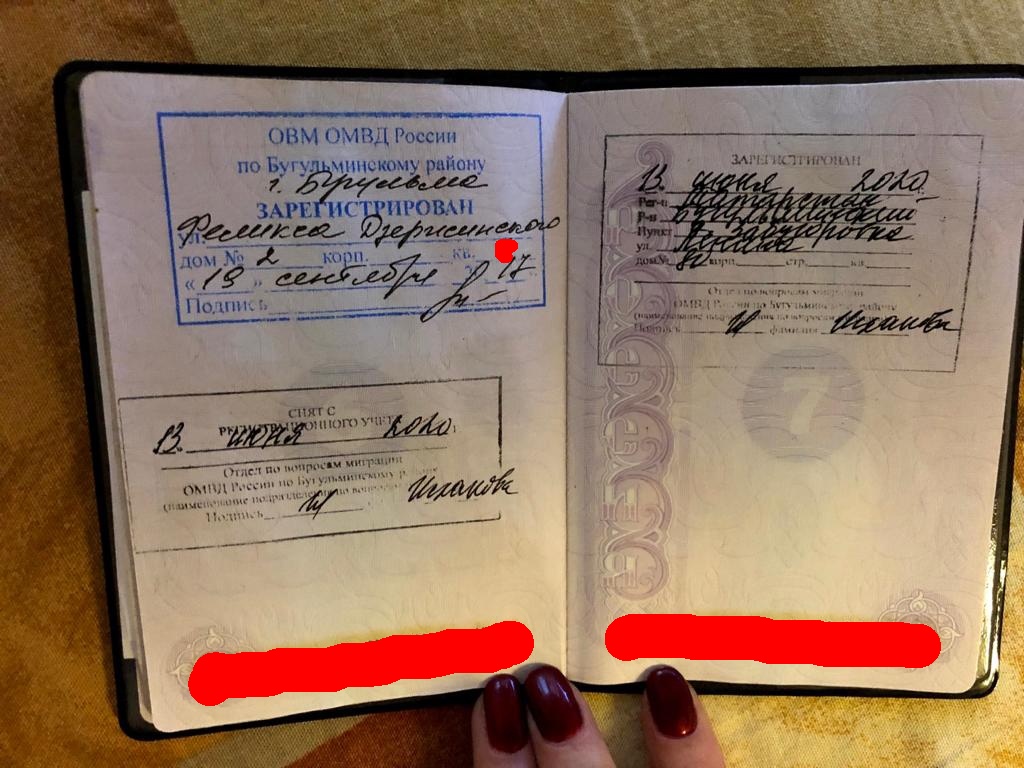 ОВМ ОМВД России
по Бугульминскому району
г. Бугульма
ЗАРЕГИСТРИРОВАН
ул. Феликса Дзержинского
дом № 2 корп. кв.
« 19 » сентября 2 17
Подпись
СНЯТ С
РЕГИСТРАЦИОННОГО УЧЕТА
13. июня 2020
Отдел по вопросам миграции
ОМВД России по Бугульминскому району
(наименование подразделения по вопросам
Подпись Исхакова
ЗАРЕГИСТРИРОВАН
13. июня 2020
Рег-н: Татарстан
Р-н Бугульминский
Пункт
ул. Ленина
дом№ 80 корп. стр. кв.
Отдел по вопросам миграции
ОМВД России по Бугульминскому району
(наименование подразделения по вопросам миграции
Подпись фамилия Исхакова
7